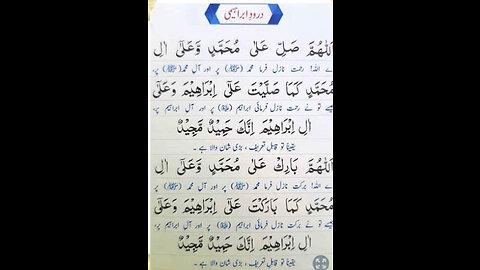 درودِ ابراہیمی
اَللّٰهُمَّ صَلِّ عَلٰی مُحَمَّدٍ وَّعَلٰٓی اٰلِ
اے اللہ! رحمت نازل فرما محمد (ﷺ) پر اور آلِ محمد (ﷺ) پر،
مُحَمَّدٍ کَمَا صَلَّیْتَ عَلٰٓی اِبْرَاهِیْمَ وَعَلٰٓی
جیسے تو نے رحمت نازل فرمائی ابراہیم (علیہ السلام) پر اور آلِ ابراہیم پر،
اٰلِ اِبْرَاهِیْمَ اِنَّكَ حَمِیْدٌ مَّجِیْدٌ
یقیناً تو قابلِ تعریف، بڑی شان والا ہے۔
اَللّٰهُمَّ بَارِكْ عَلٰی مُحَمَّدٍ وَّعَلٰٓی اٰلِ
اے اللہ! برکت نازل فرما محمد (ﷺ) پر اور آلِ محمد (ﷺ) پر،
مُحَمَّدٍ کَمَا بَارَکْتَ عَلٰٓی اِبْرَاهِیْمَ وَعَلٰٓی
جیسے تو نے برکت نازل فرمائی ابراہیم (علیہ السلام) پر اور آلِ ابراہیم پر،
اٰلِ اِبْرَاهِیْمَ اِنَّكَ حَمِیْدٌ مَّجِیْدٌ
یقیناً تو قابلِ تعریف، بڑی شان والا ہے۔